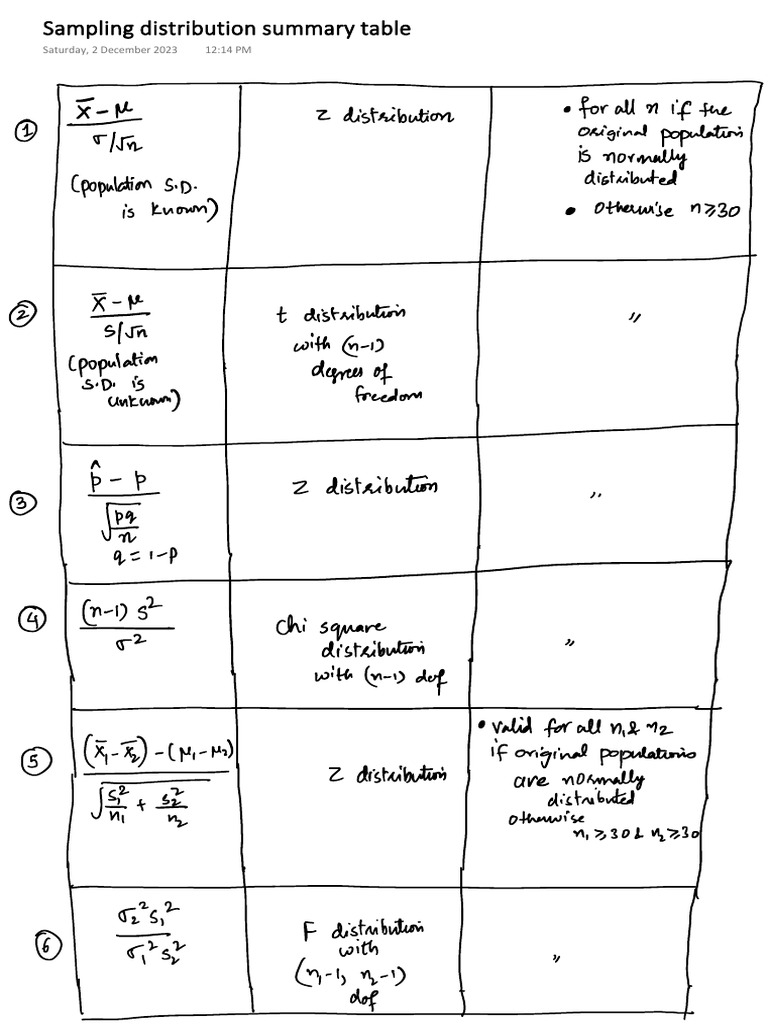 Sampling distribution summary table
Saturday, 2 December 2023 12:14 PM
① x̄ - μ / σ/√n
(population S.D.
is known)
Z distribution
• for all n if the
original population
is normally
distributed
• Otherwise n ≥ 30
② x̄ - μ / s/√n
(population
S.D. is
unknown)
t distribution
with (n-1)
degrees of
freedom
"
③ p̂ - p / √(pq/n)
q = 1-p
Z distribution
"
④ (n-1) s² / σ²
Chi square
distribution
with (n-1) dof
"
⑤ (x̄₁ - x̄₂) - (μ₁ - μ₂) / √(s₁²/n₁ + s₂²/n₂)
Z distribution
• valid for all n₁ & n₂
if original populations
are normally
distributed
otherwise
n₁ ≥ 30 & n₂ ≥ 30
⑥ σ₂² s₁² / σ₁² s₂²
F distribution
with
(n₁-1, n₂-1)
dof
"